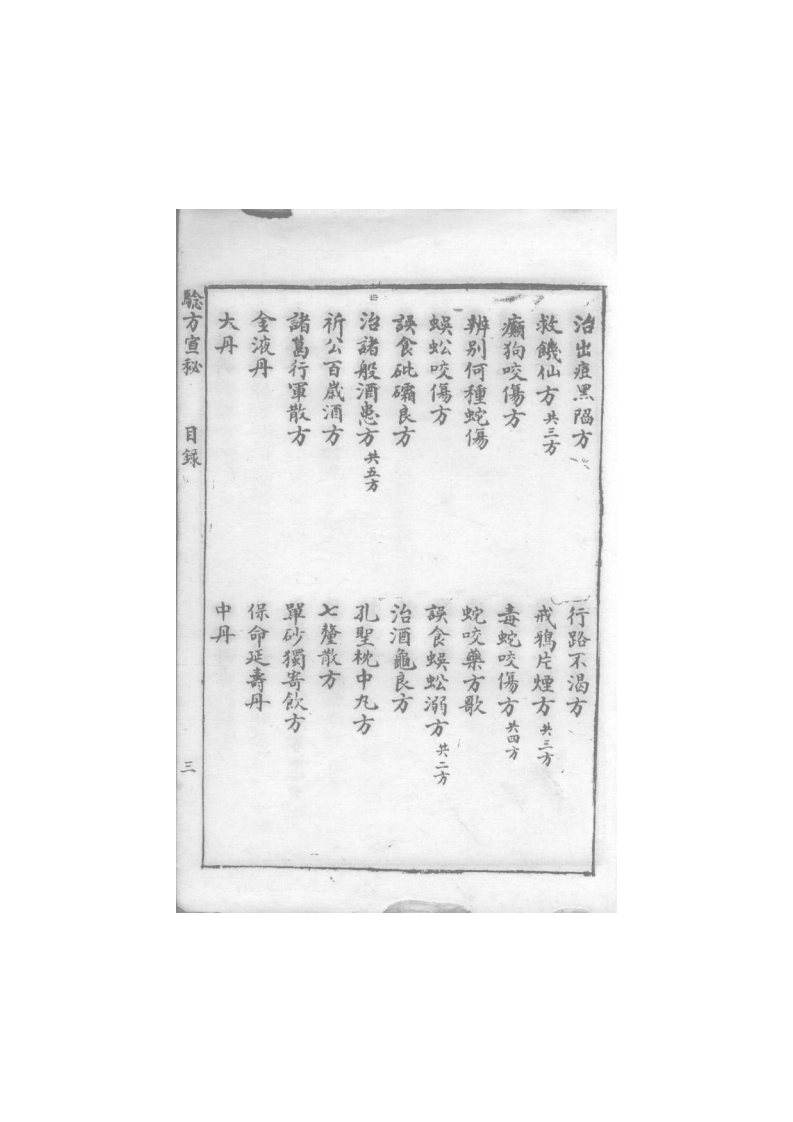 治出痘黑陷方
行路不渴方
救饑仙方 共三方
戒鴉片煙方 共三方
癲狗咬傷方
毒蛇咬傷方 共四方
辨别何種蛇傷
蛇咬藥方歌
蜈蚣咬傷方
誤食蜈蚣溺方 共二方
誤食砒礵良方
治酒龜良方
治諸般酒患方 共五方
孔聖枕中丸方
祈公百歲酒方
七釐散方
諸葛行軍散方
單砂獨寄飲方
金液丹
保命延壽丹
大丹
中丹
驗方宣秘 目録 三